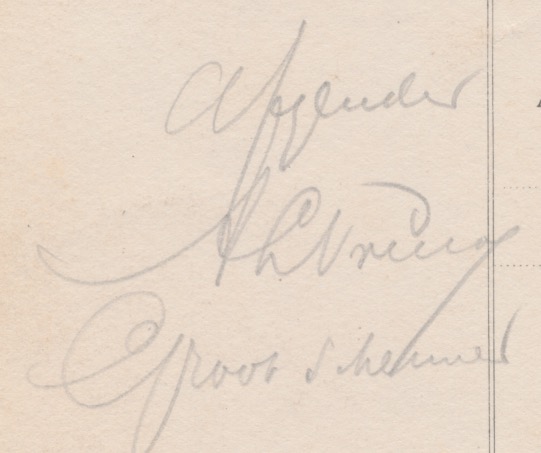 Afzender
A L Vring
Groot Schermer